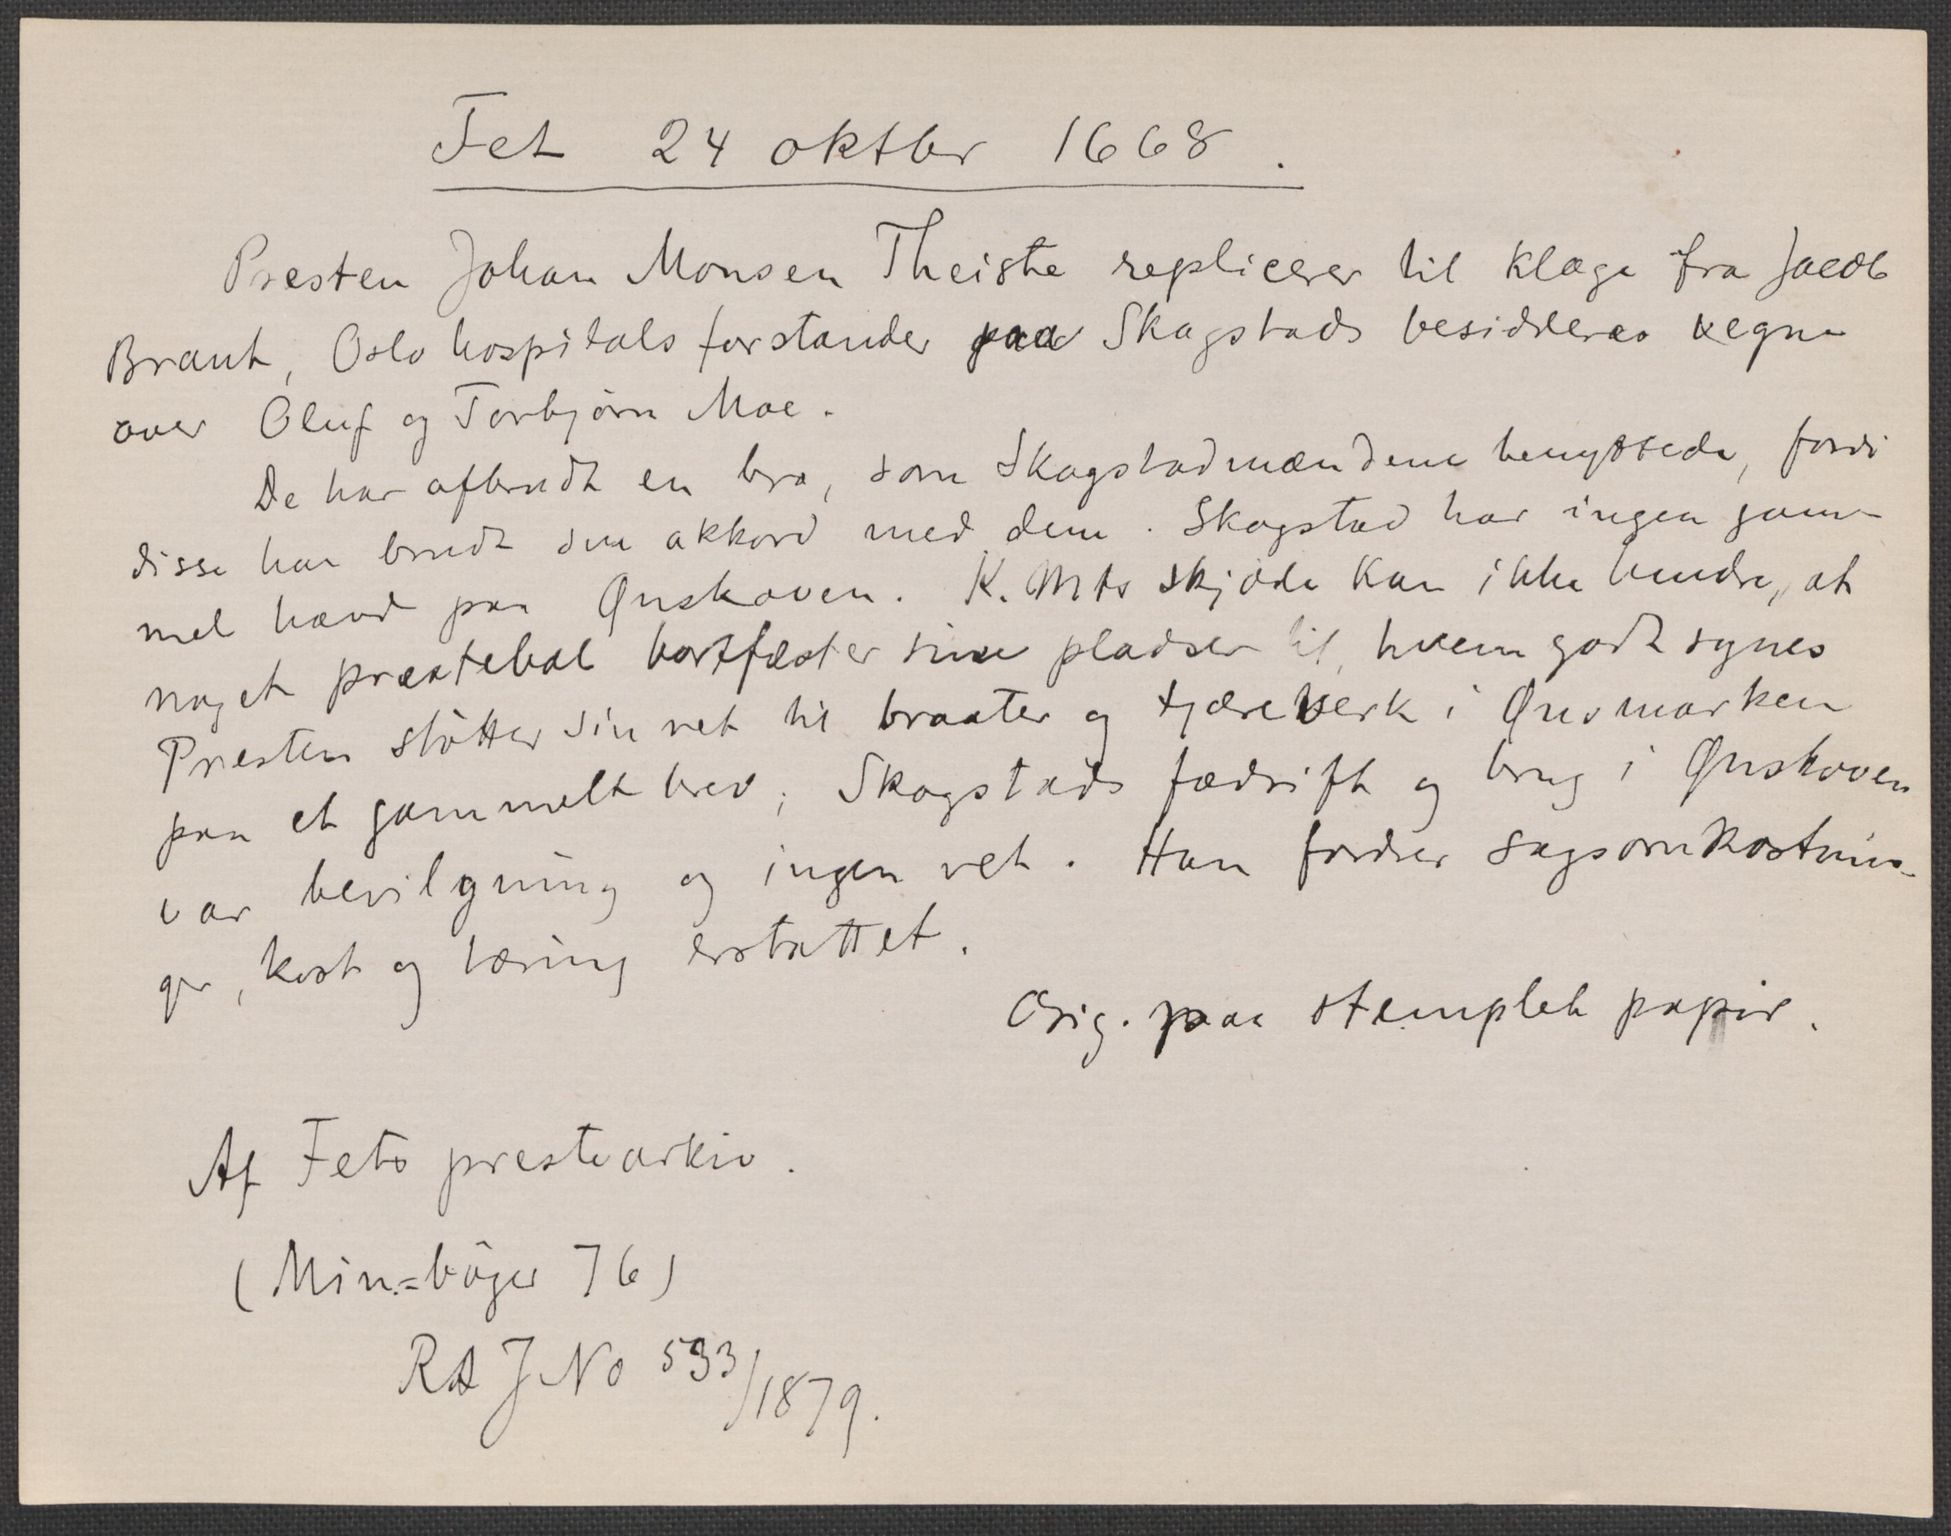 Fet 24 oktbr 1668.
Presten Johan Monsen Theiste replicerer til klage fra Jacob
Brant, Oslo hospitals forstander paa Skagstads besidderes vegne
over Oluf og Torbjörn Moe.
De har afbrudt en bro, som Skagstadmændene benyttede, fordi
disse har brudt sin akkord med dem. Skagstad har ingen gam-
mel hævd paa Ønskoven. K. Mts skjöde kan ikke hindre, at
noget præstebol bortfæster sine pladser til, hvem godt synes
Presten stötter sin ret til braater og tjæreverk i Ønsmarken
paa et gammelt brev; Skagstads fædrift og brug i Ønskoven
var bevilgning og ingen ret. Han fordrer sagsomkostnin-
ger, kost og tæring erstattet.
Orig. paa stemplet papir.
Af Fets prestearkiv.
(Min.=böger 76)
RA J No 533/1879.